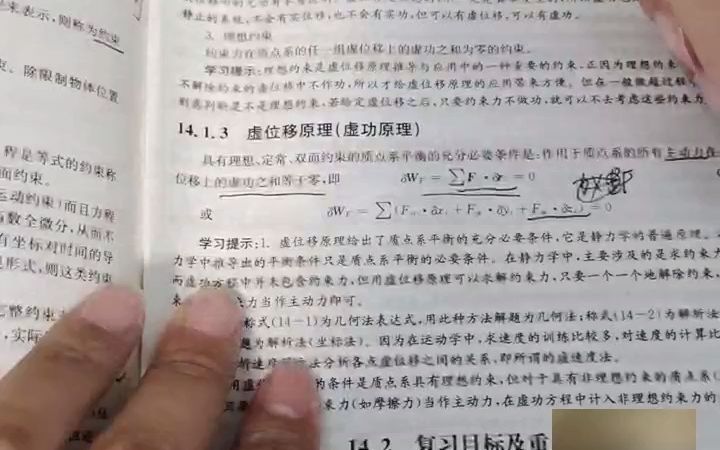 来表示,则称为约束
束、除限制物体位置
程是等式的约束称
面约束。
运动约束)而且方程
函数全微分,从而不
有坐标对时间的导
见形式,则这类约束
完整约束
,实际
静止的系统,不会有实位移,也不会有实功,但可以有虚位移,可以有虚功。
3. 理想约束
约束力在质点系的任一组虚位移上的虚功之和为零的约束。
学习提示:理想约束是虚位移原理推导与应用中的一种重要的约束。正因为理想约束
不解除约束的虚位移中不作功,所以才给虚位移原理的应用带来方便。但在一般微超过程
到底判断是不是理想约束,若给定虚位移之后,只要约束力不做功,就可以不去考虑这些约束力
14.1.3 虚位移原理(虚功原理)
具有理想、定常、双面约束的质点系平衡的充分必要条件是:作用于质点系的所有主动力在
位移上的虚功之和等于零,即
δW_F = ∑F · δr = 0
或
δW_F = ∑(F_x · δx_i + F_y · δy_i + F_z · δz_i) = 0
学习提示:1. 虚位移原理给出了质点系平衡的充分必要条件,它是静力学的普遍原理。
力学中推导出的平衡条件只是质点系平衡的必要条件。在静力学中,主要涉及的是求约束力
而虚功方程中并未包含约束力,但用虚位移原理可以求解约束力,只要一个一个地解除约束,
力当作主动力即可。
称式(14-1)为几何法表达式,用此种方法解题为几何法;称式(14-2)为解析法
题为解析法(坐标法)。因为在运动学中,求速度的训练比较多,对速度的计算比
法分析各点虚位移之间的关系,即所谓的虚速度法。
的条件是质点系具有理想约束,但对于具有非理想约束的质点系(
束力(如摩擦力)当作主动力,在虚功方程中计入非理想约束力的
14.2 复习目标及重